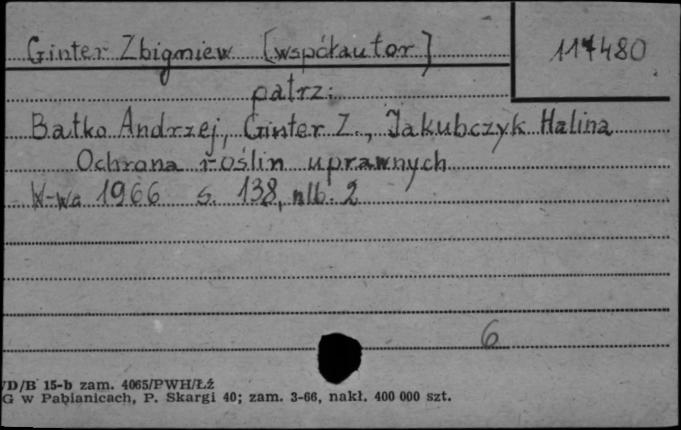 Ginter Zbigniew [współautor]
117480
patrz:
Batko Andrzej, Ginter Z., Jakubczyk Halina
Ochrona roślin uprawnych
W-wa 1966 s. 138, nlb. 2
6
VD/B 15-b zam. 4065/PWH/Łź
G w Pabianicach, P. Skargi 40; zam. 3-66, nakł. 400 000 szt.